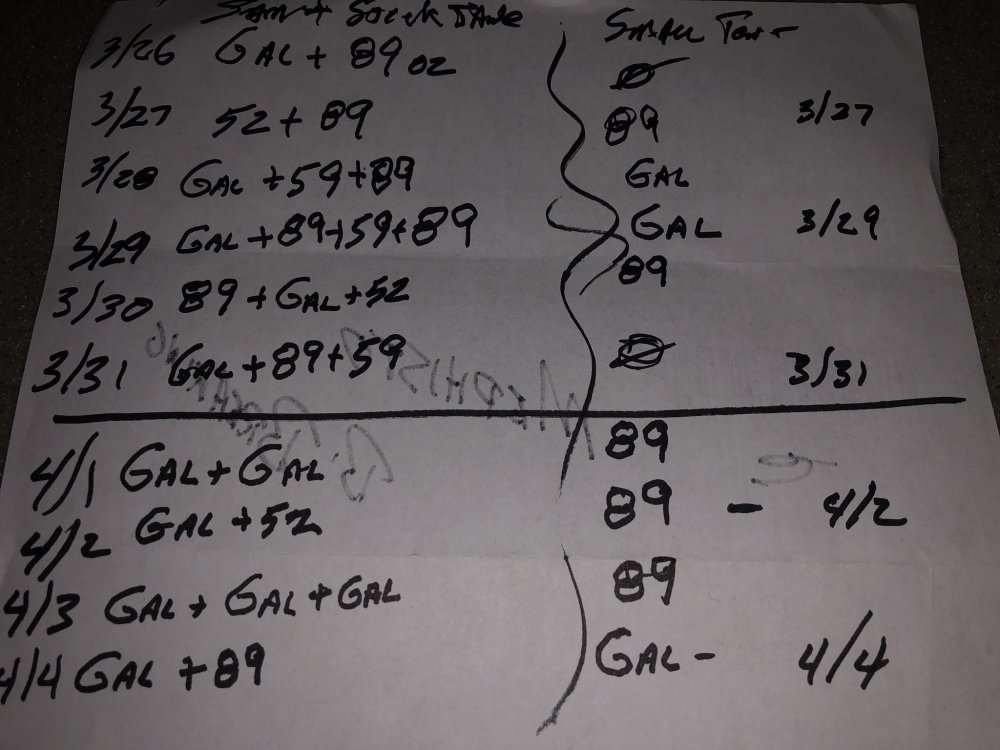 Stock Tank Small Tank
3/26 GAL + 89 oz Ø
3/27 52 + 89 89 3/27
3/28 GAL + 59 + 89 GAL
3/29 GAL + 89 + 59 + 89 GAL 3/29
3/30 89 + GAL + 52 89
3/31 GAL + 89 + 59 Ø 3/31
4/1 GAL + GAL 89
4/2 GAL + 52 89 - 4/2
4/3 GAL + GAL + GAL 89
4/4 GAL + 89 GAL - 4/4